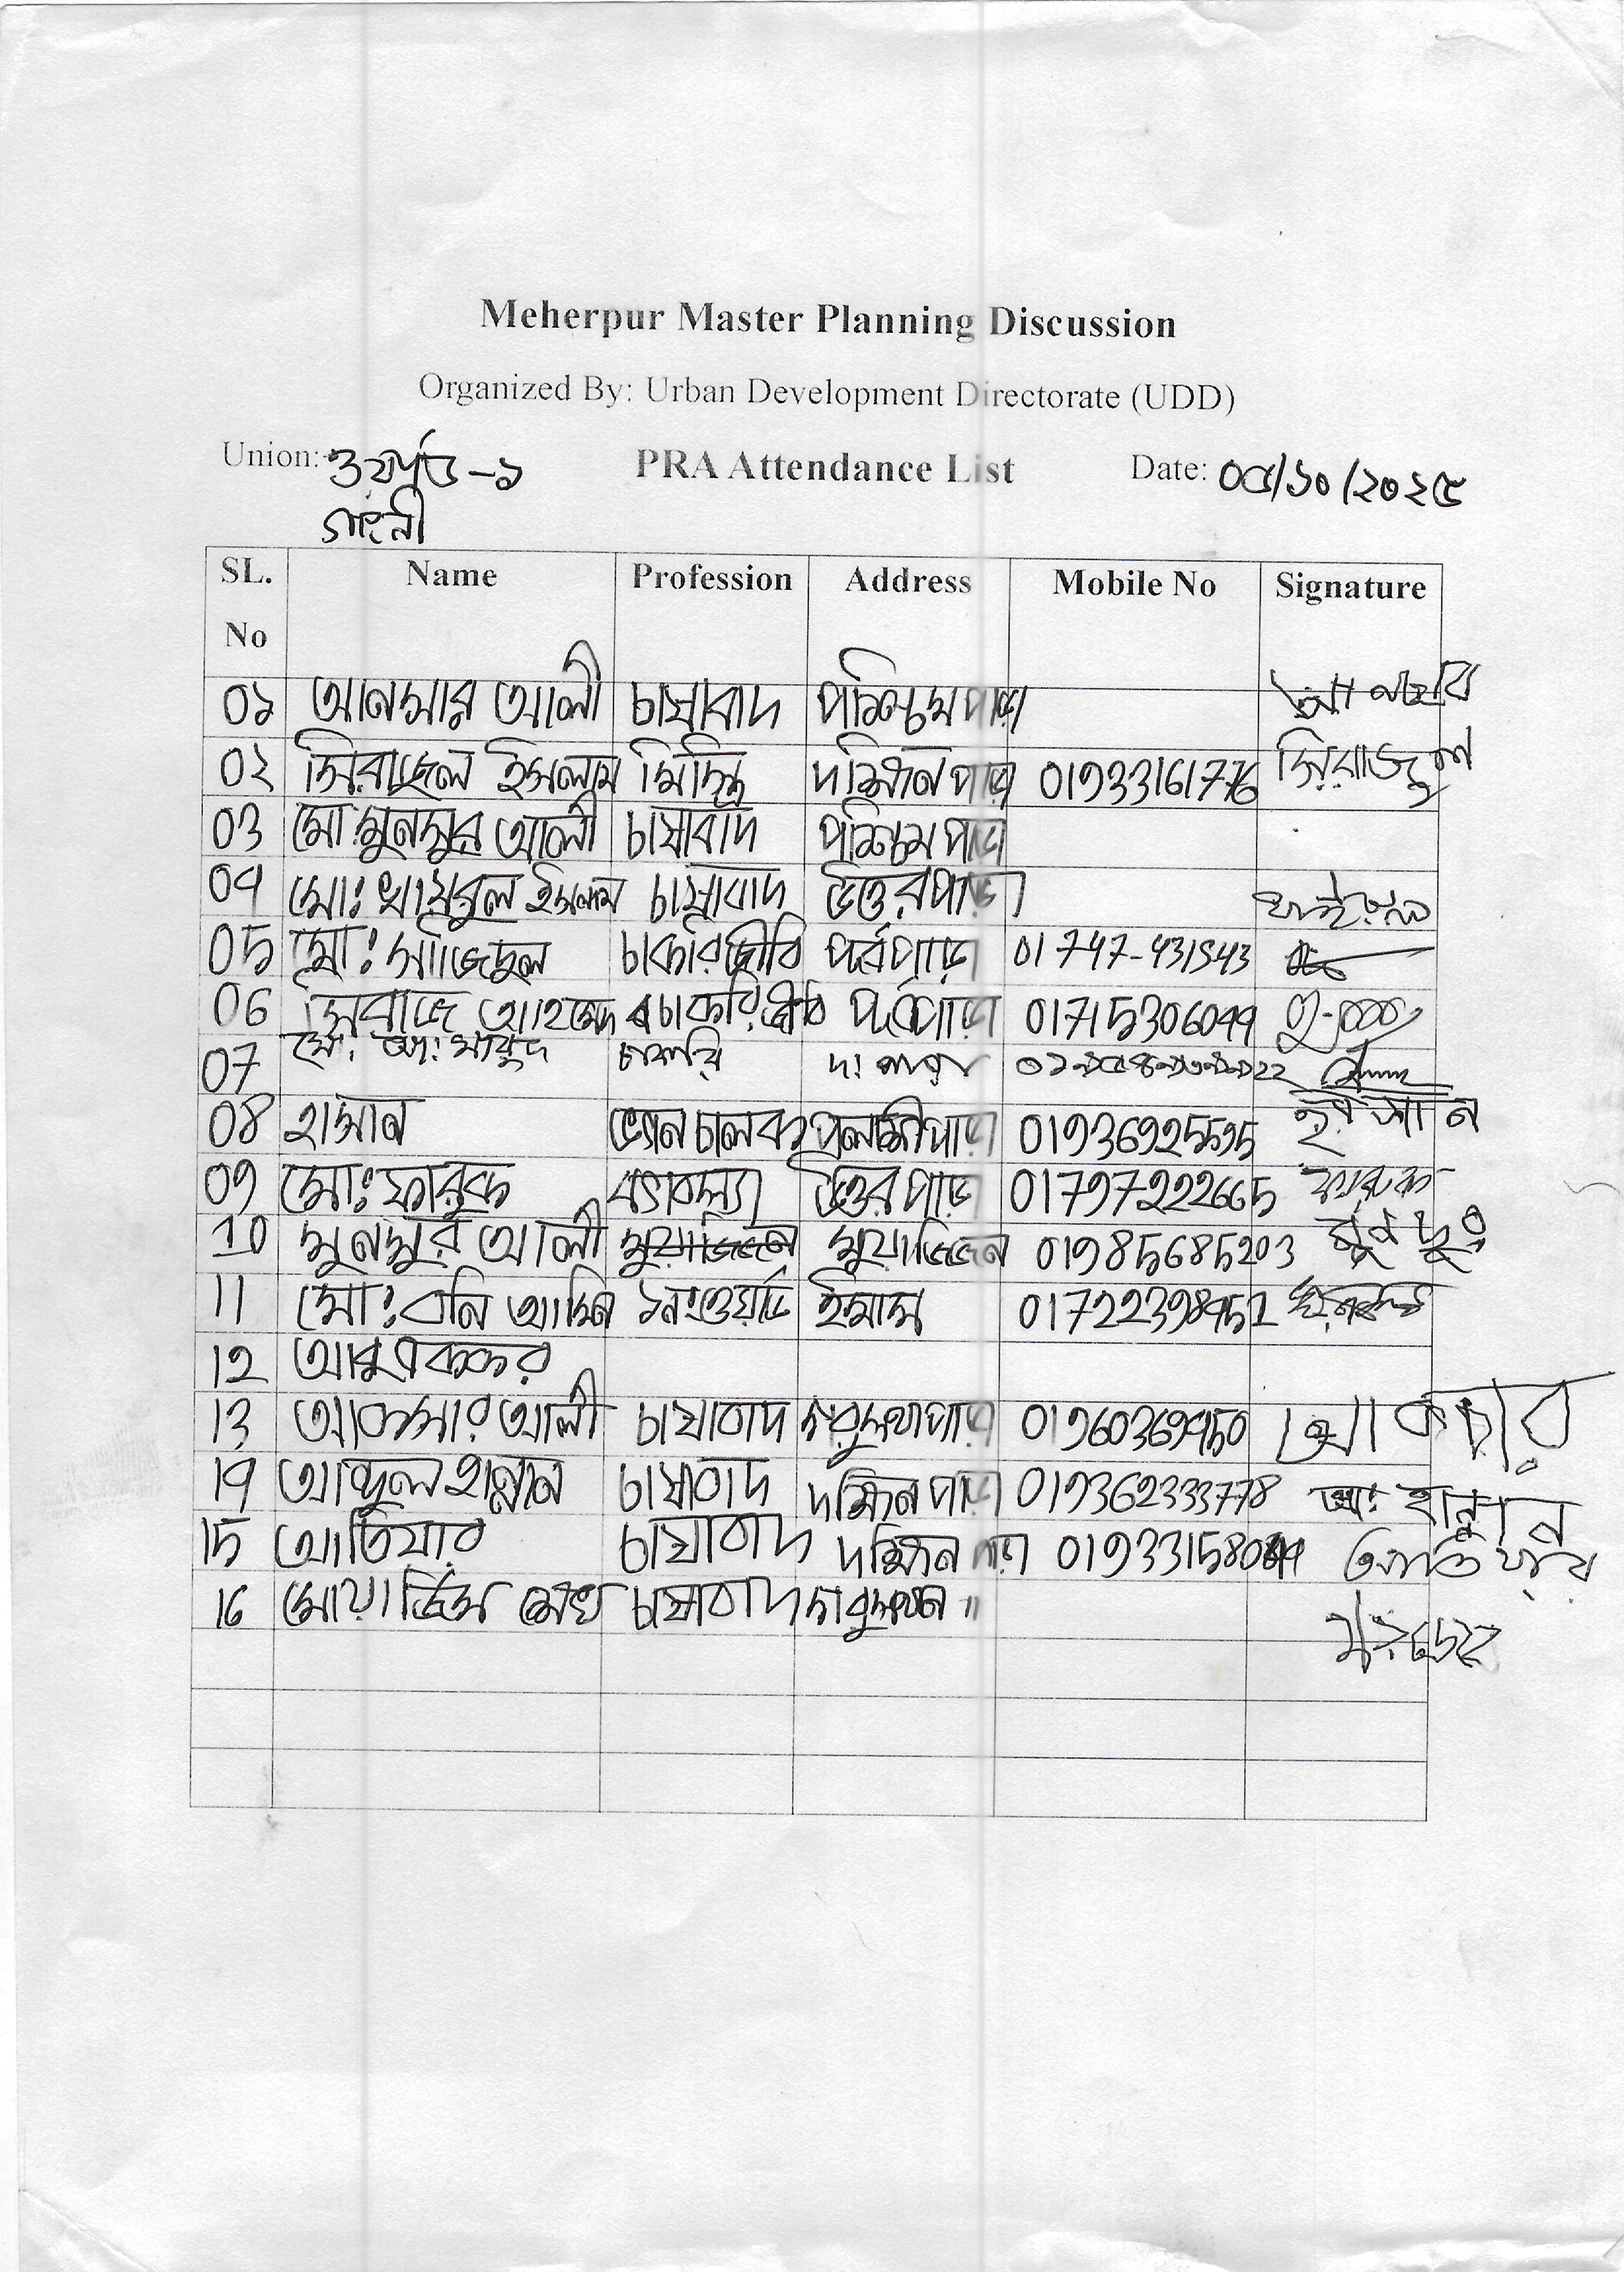 Meherpur Master Planning Discussion
Organized By: Urban Development Directorate (UDD)
Union: ওয়ার্ড -১ PRA Attendance List Date: ০৫/১০/২০২৫
গাংনী
SL. No Name Profession Address Mobile No Signature
0১ আনসার আলী চাষাবাদ পশ্চিম পাড়া
0২ সিরাজুল ইসলাম মিস্ত্রি দক্ষিন পাড়া 01933161776 সিরাজুল
03 মো মুনসুর আলী চাষাবাদ পশ্চিম পাড়া
04 মোঃ খায়রুল ইসলাম চাষাবাদ উত্তর পাড়া
05 মোঃ সাজেদুল চাকরিজীবি পূর্বপাড়া 01747-431543
06 সিরাজ আহমেদ চাকরিজীবি পূর্বপাড়া 01715306044
07 মো: আ: মাবুদ চাকরি দ: পাড়া
08 হাসান ভ্যান চালক পাড়া 01936925595 হাসান
09 মোঃ ফারুক উত্তর পাড়া 01797222665 ফারুক
10 মুনসুর আলী মুয়াজ্জিন মুয়াজ্জিন 01985685203 মুনছুর
11 মোঃ বনি আমিন ১নংওয়ার্ড ইমাম
12 আবু বককর
13 আকসার আলী চাষাবাদ পাড়া 01960369450 আকছার
14 আব্দুল হান্নান চাষাবাদ দক্ষিন পাড়া 01936233377৪ আ: হান্নান
15 আতিয়ার চাষাবাদ দক্ষিন পাড়া আতিয়ার
16 শেখ চাষাবাদ "